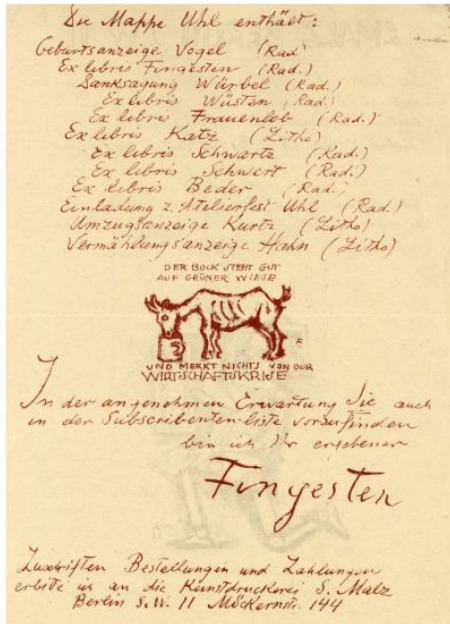 Die Mappe Uhl enthält:
Geburtsanzeige Vogel (Rad
Ex libris Fingesten (Rad.)
Danksagung Würbel (Rad.)
Ex libris Wüsten (Rad.)
Ex libris Frauenlob (Rad.)
Ex libris Katz (Litho)
Ex libris Schwartz (Rad.)
Ex libris Schwert (Rad.)
Ex libris Beder (Rad.)
Einladung z. Atelierfest Uhl (Rad.)
Umzugsanzeige Kurtz (Litho)
Vermählungsanzeige Hahn (Litho)
DER BOCK STEHT GUT
AUF GRÜNER WIESE
UND MERKT NICHTS VON DER
WIRTSCHAFTSKRISE
In der angenehmen Erwartung Sie auch
in der Subscribenten-liste vorzufinden
bin ich Ihr ergebener
Fingesten
Zuschriften Bestellungen und Zahlungen
erbitte ich an die Kunstdruckerei S. Malz
Berlin S.W. 11 Möckernstr. 144